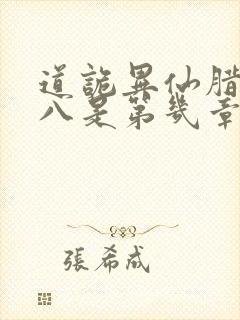 道詭異仙腊
八是第幾章
張希成